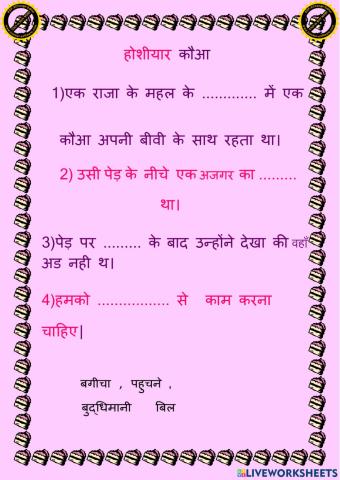 होशीयार कौआ
1)एक राजा के महल के ............. में एक
कौआ अपनी बीवी के साथ रहता था।
2) उसी पेड़ के नीचे एक अजगर का .........
था।
3)पेड़ पर ......... के बाद उन्होंने देखा की वहाँ
अड नही थ।
4)हमको ................. से काम करना
चाहिए|
बगीचा , पहुचने ,
बुद्धिमानी बिल
LIVEWORKSHEETS